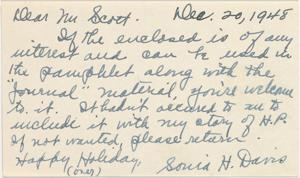 Dear Mr Scott. Dec. 20, 1948
If the enclosed is of any
interest and can be used in
the pamphlet along with the
"Journal" material, you're welcome
to it. It hadn't occured to me to
include it with my story of H.P.
If not wanted, please return.
Happy Holiday,
(over) Sonia H. Davis